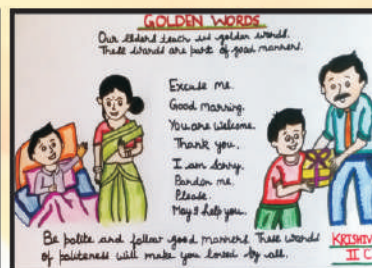 GOLDEN WORDS
Our Elders teach us golden words.
These words are part of good manners.
Excuse me.
Good Morning.
You are welcome.
Thank you.
I am Sorry.
Pardon me.
Please.
May I help you.
Be polite and follow good manners These words
of politeness will make you loved by all.
KRISHIV
II C